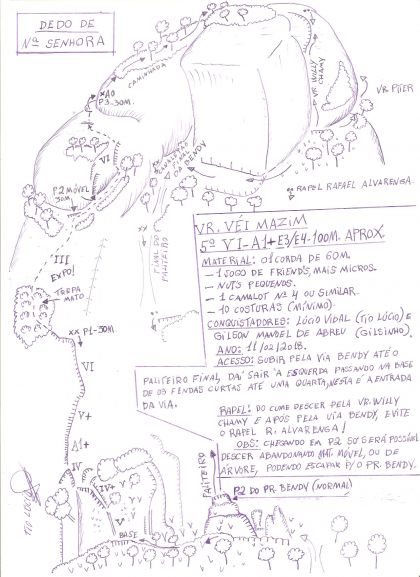 DEDO DE
Nª SENHORA
CAMINHADA
XA0
P3-30M.
VI
P2 MÓVEL
30M.
III
EXPO!
TERRA
MATO
XX P1-30M.
VI
V+
A1+
IV
IV+
V
BASE
FINAL DO
PALITEIRO
FINAL
DA BENDY
VR. WILLY
CHAMY
VR. PTER
RAPEL RAFAEL ALVARENGA.
VR. VÉI MAZIM
5º VI-A1+E3/E4-100M. APROX.
MATERIAL: 01 CORDA DE 60M.
- 1 JOGO DE FRIENDS, MAIS MICROS.
- NUTS PEQUENOS.
- 1 CAMALOT Nº 4 OU SIMILAR.
- 10 COSTURAS (MÍNIMO).
CONQUISTADORES: LÚCIO VIDAL (TIO LÚCIO) E
GILSON MANOEL DE ABREU (GILSINHO).
ANO: 11/02/2018.
ACESSO: SUBIR PELA VIA BENDY ATÉ O
PALITEIRO FINAL, DAÍ SAIR À ESQUERDA PASSANDO NA BASE
DE 03 FENDAS CURTAS ATÉ UMA QUARTA, NESTA É A ENTRADA
DA VIA.
RAPEL: DO CUME DESCER PELA VR. WILLY
CHAMY E APÓS PELA VIA BENDY, EVITE
O RAPEL R. ALVARENGA!
OBS: CHEGANDO EM P2 SÓ SERÁ POSSÍVEL
DESCER ABANDONANDO MAT. MÓVEL, OU DE
ÁRVORE, PODENDO ESCAPAR P/ O PR. BENDY.
PALITEIRO
P2 DO PR. BENDY (NORMAL)